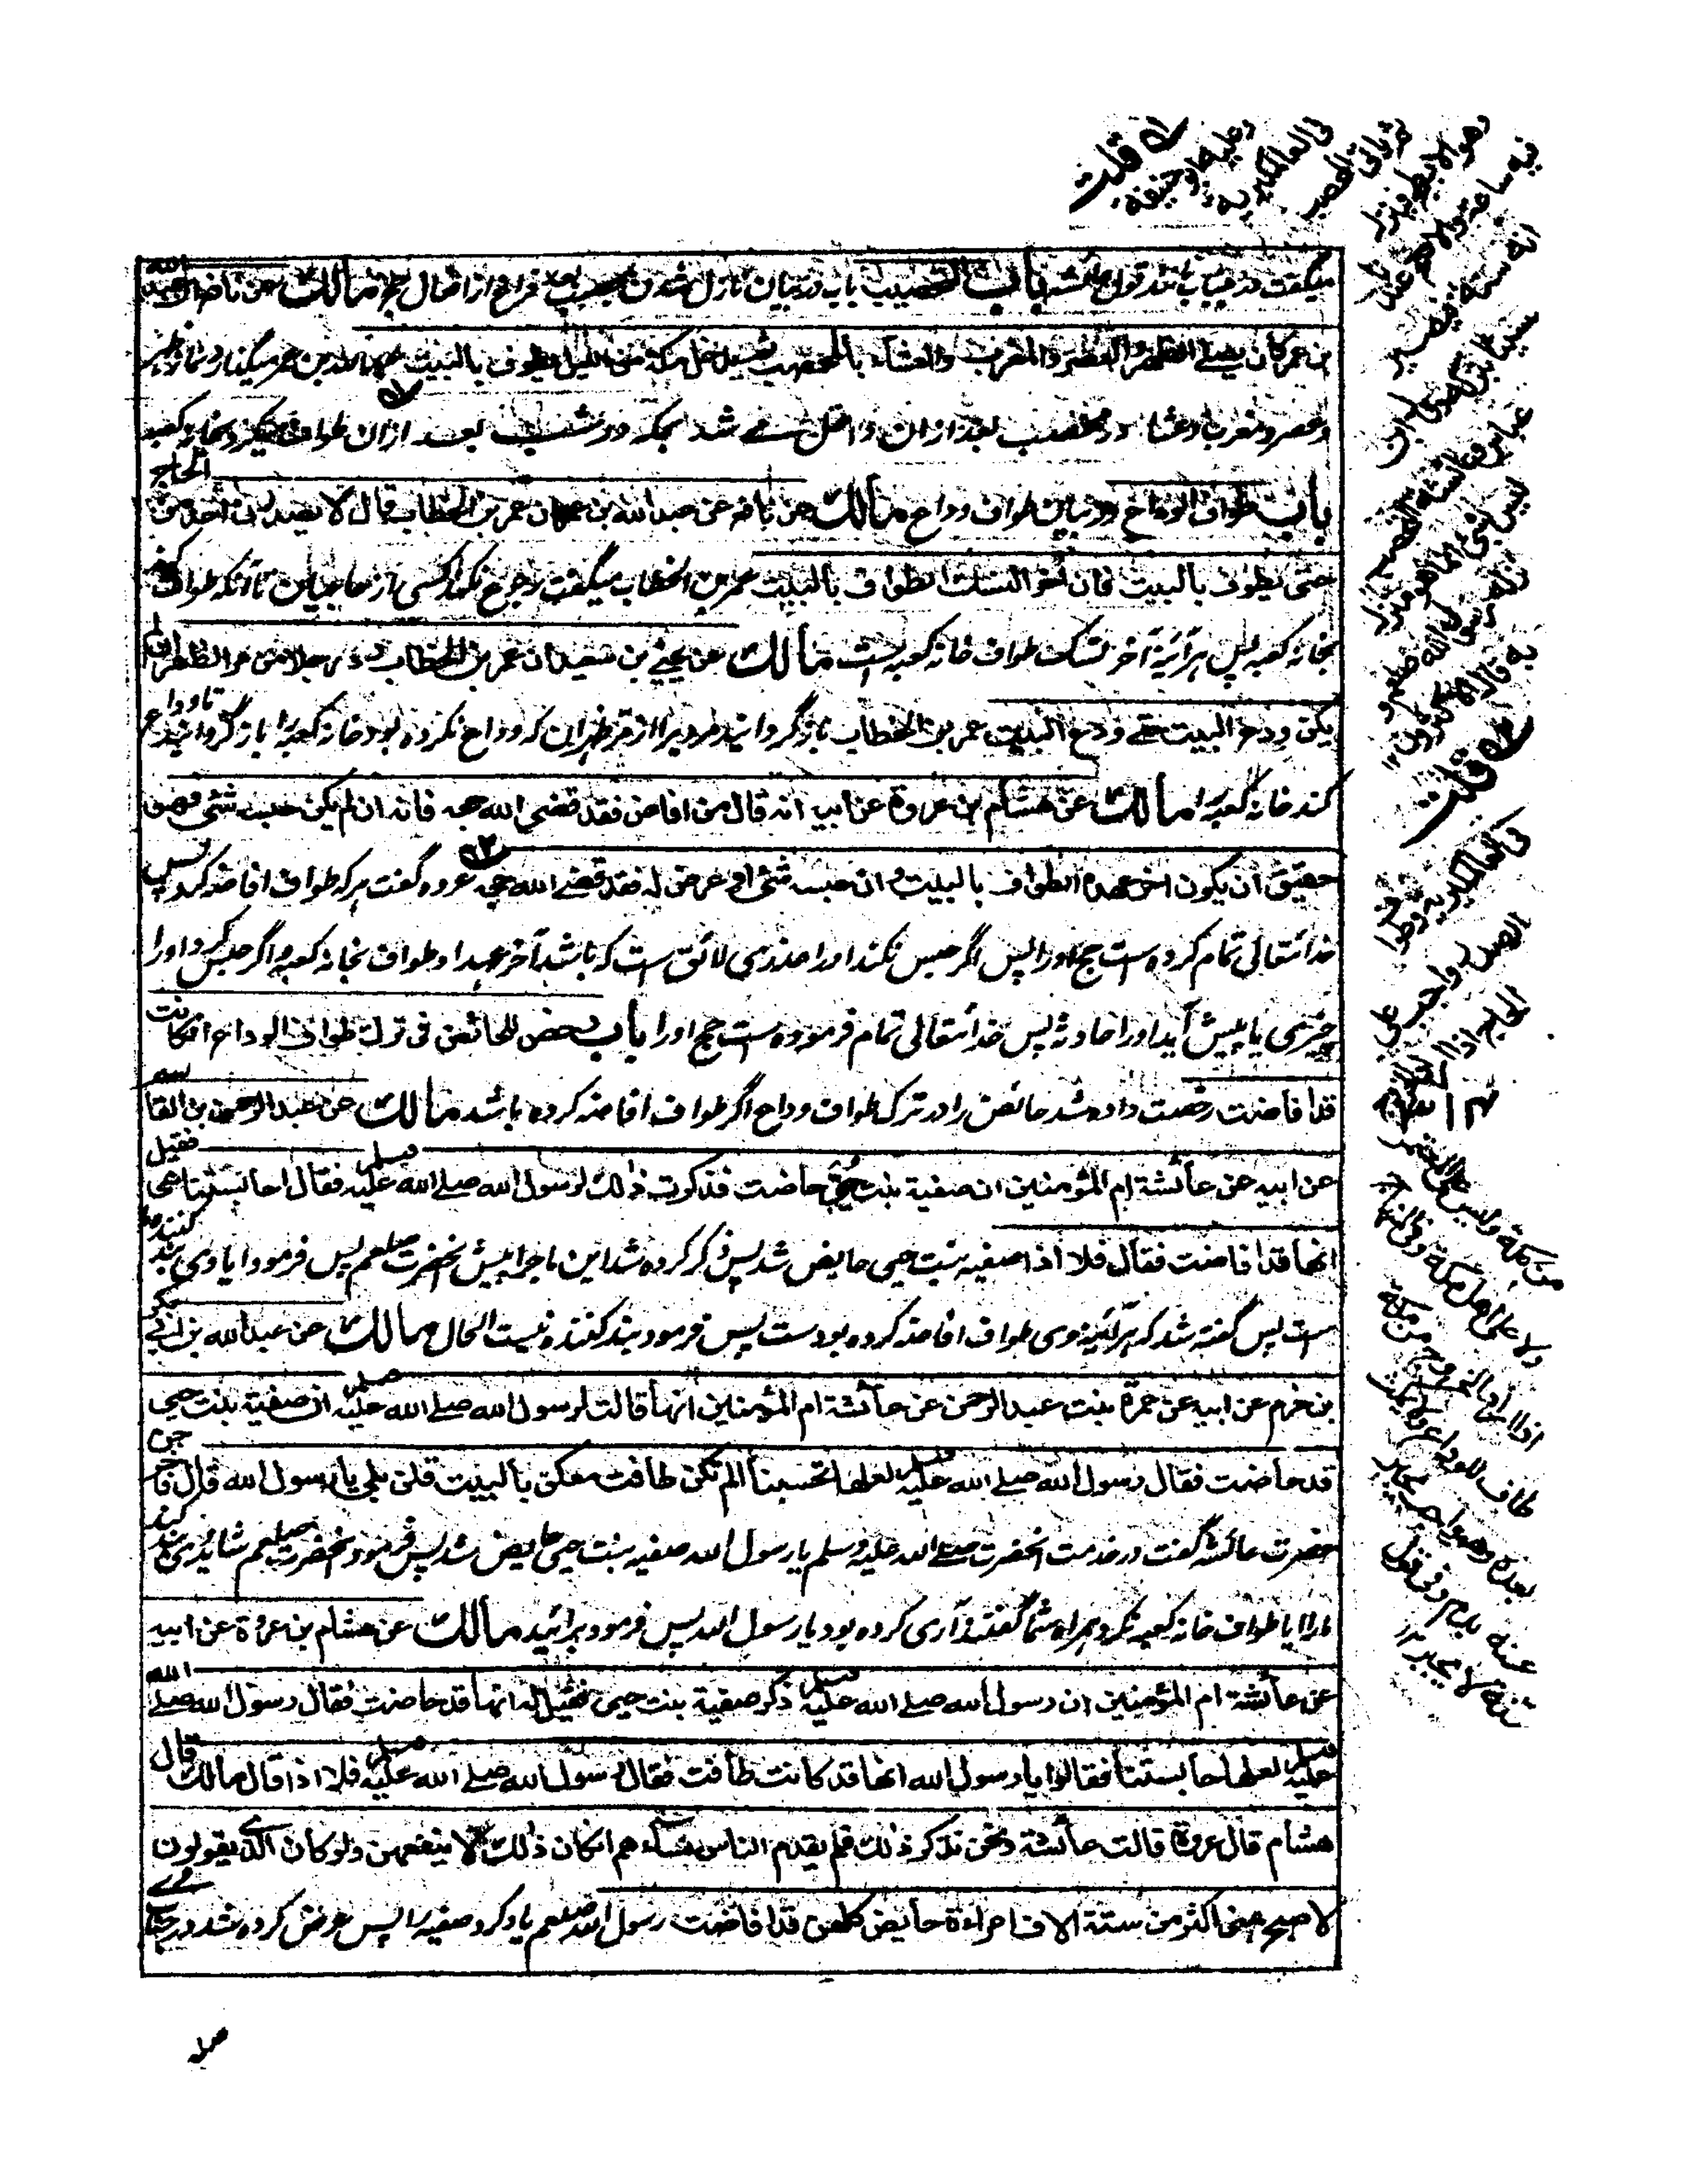 میگفت درین باب مانند قول عائشه باب التحصیب باب در بیان نازل شدن بمحصب بعد فراغ از افعال حج مالك عن نافع ان عبد الله
بن عمر كان يصلے الظهر والعصر والمغرب والعشاء بالمحصب ثم يدخل مكة من الليل فيطوف بالبيت عبدالله بن عمر میگذارد نماز ظهر
وعصر ومغرب وعشا در محصب بعد ازان داخل مے شد بمکه در شب بعد ازان طواف میکرد بخانه کعبه
باب طواف الوداع در بیان طواف وداع مالك عن نافع عن عبد الله بن عمر ان عمر بن الخطاب قال لا يصدرن احد من الحاج
حتى يطوف بالبيت فان آخر النسك الطواف بالبيت عمر بن الخطاب میگفت رجوع نکند کسی از حاجیان تا آنکه طواف کند
بخانه کعبه پس هرآئینه آخر نسک طواف خانه کعبه است مالك عن يحيے بن سعيد ان عمر بن الخطاب رد رجلا من مر الظهران لم
يكن ودع البيت حتے ودع البيت عمر بن الخطاب باز گردانید مردیرا از مر ظهران که وداع نکرده بود خانه کعبه را باز گردانید تا وداع
کند خانه کعبه را مالك عن هشام بن عروة عن ابيه انه قال من افاض فقد قضى الله حجه فانه ان لم يكن حبسه شئى فهو
حقيق ان يكون آخر عهده الطواف بالبيت وان حبسه شئ او عرض له فقد قضے الله حجه عروه گفت هر که طواف افاضه کرد پس
خدائتعالی تمام کرده است حج اورا پس اگر حبس نکند اورا عذری لائق است که باشد آخر عهد او طواف بخانه کعبه واگر حبس کرد اورا
چیزی یا پیش آید اورا حادثه پس خدائتعالی تمام فرموده است حج اورا باب رخص للحائض فی ترك طواف الوداع اذا كانت
قد افاضت رخصت داده شد حائض را در ترک طواف وداع اگر طواف افاضه کرده باشد مالك عن عبد الرحمن بن القاسم
عن ابيه عن عائشة ام المؤمنين ان صفية بنت حيي حاضت فذكرت ذلك لرسول الله صلے الله عليه وسلم فقال احابستنا هى فقيل
انها قد افاضت فقال فلا اذا صفیه بنت حیی حایض شد پس ذکر کرده شد این ماجرا پیش آنحضرت صلعم پس فرمود ایا وی بند کننده ما
است پس گفته شد که هرآئینه وی طواف افاضه کرده بودست پس فرمود بند کننده نیست الحال مالك عن عبد الله بن ابی بكر
بن حزم عن ابيه عن عمرة بنت عبد الرحمن عن عائشة ام المؤمنين انها قالت لرسول الله صلے الله عليه وسلم ان صفية بنت حيي
قد حاضت فقال رسول الله صلے الله عليه وسلم لعلها تحبسنا الم تكن طافت معكن بالبيت قلن بلى يا رسول الله قال فاخرجن
حضرت عائشه گفت در خدمت آنحضرت صلے الله علیه وسلم یا رسول الله صفیه بنت حیی حایض شد پس فرمود آنحضرت صلعم شاید وی بند کند
مارا ایا طواف خانه کعبه نکرد همراه شما گفتند آری کرده بود یا رسول الله پس فرمود برائید مالك عن هشام بن عروة عن ابيه
عن عائشة ام المؤمنين ان رسول الله صلے الله عليه وسلم ذكر صفية بنت حيي فقيل له انها قد حاضت فقال رسول الله صلے الله
عليه وسلم لعلها حابستنا فقالوا يا رسول الله انها قد كانت طافت فقال رسول الله صلے الله عليه وسلم فلا اذا قال مالك قال
هشام قال عروة قالت عائشة ونحن نذكر ذلك فلم يقدم الناس نساءهم ان كان ذلك لا ينفعهن ولو كان الذي يقولون
لاصبح بمنى اكثر من ستة الاف امراءة حايض كلهن قد افاضت رسول الله صلعم یاد کرد صفیه را پس عرض کرده شد در جناب وے
قلت
وعليه ابو حنيفة
فی العالمگیریة
ثم یاتی المحصب
وهو الابطح وینزل
فیه ساعة والاصح عندنا
انه سنة فیصیر
مسیئا بترکه
ابن
عباس وعائشة التحصیب
لیس بشئ انما هو منزل
نزله رسول الله صلعم و
به قال
قلت
فی العالمگیریة وطواف
الصدر واجب علی
الحاج اذا اراد الخروج
من مكة وليس على المعتمر
ولا على اهل مكة
اذا
طاف للوداع
بعده وهو واجب يجبر
عنه بدم وفى قول
سنة لا يجبر